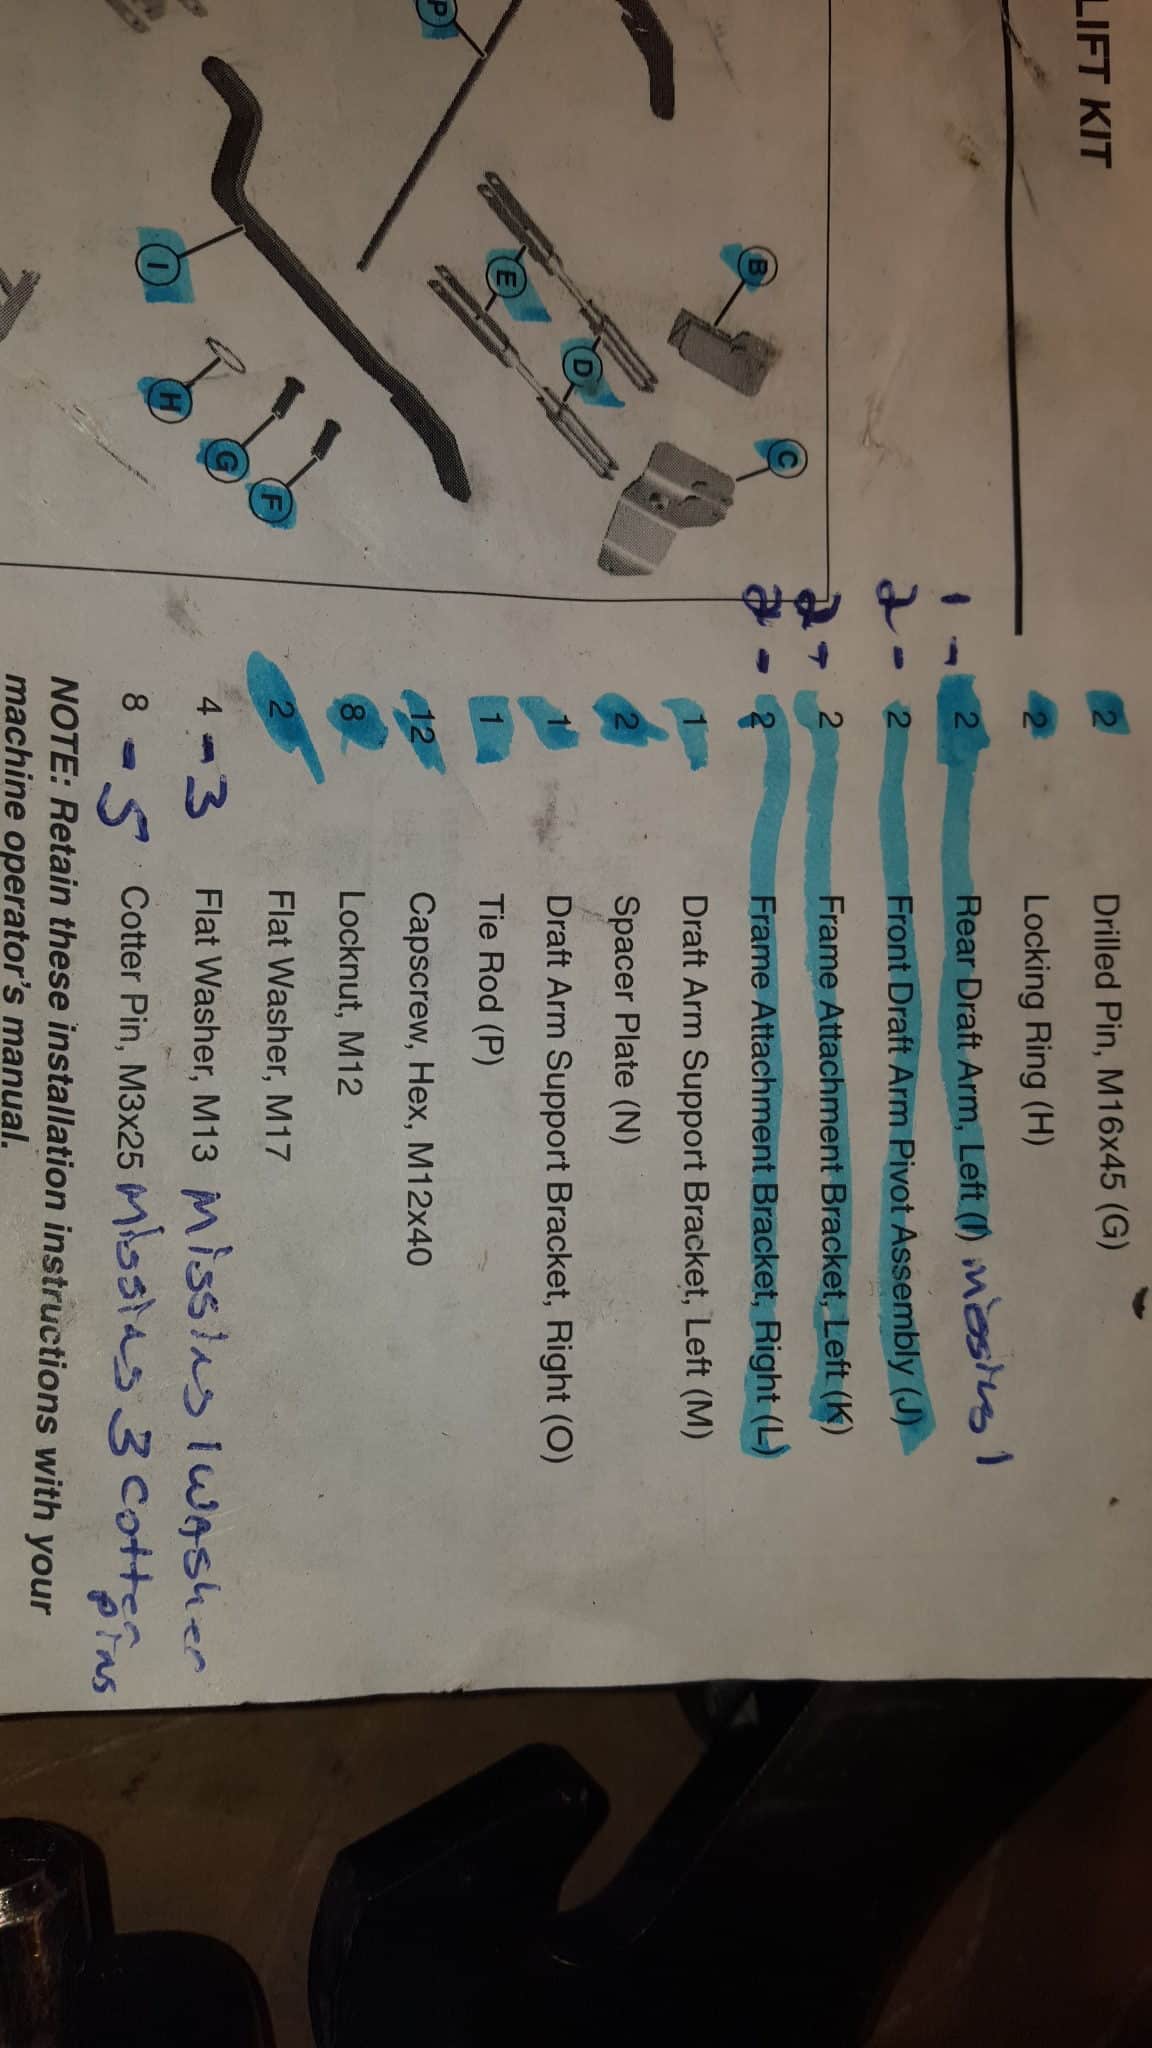 LIFT KIT
2 Drilled Pin, M16x45 (G)
2 Locking Ring (H)
1 - 2 Rear Draft Arm, Left (I) missing 1
2 - 2 Front Draft Arm Pivot Assembly (J)
2 - 2 Frame Attachment Bracket, Left (K)
2 - 2 Frame Attachment Bracket, Right (L)
1 Draft Arm Support Bracket, Left (M)
2 Spacer Plate (N)
1 Draft Arm Support Bracket, Right (O)
1 Tie Rod (P)
12 Capscrew, Hex, M12x40
8 Locknut, M12
2 Flat Washer, M17
4 - 3 Flat Washer, M13 Missing 1 washer
8 - 5 Cotter Pin, M3x25 Missing 3 cotter pins
NOTE: Retain these installation instructions with your
machine operator's manual.
B
C
E
D
P
I
H
G
F